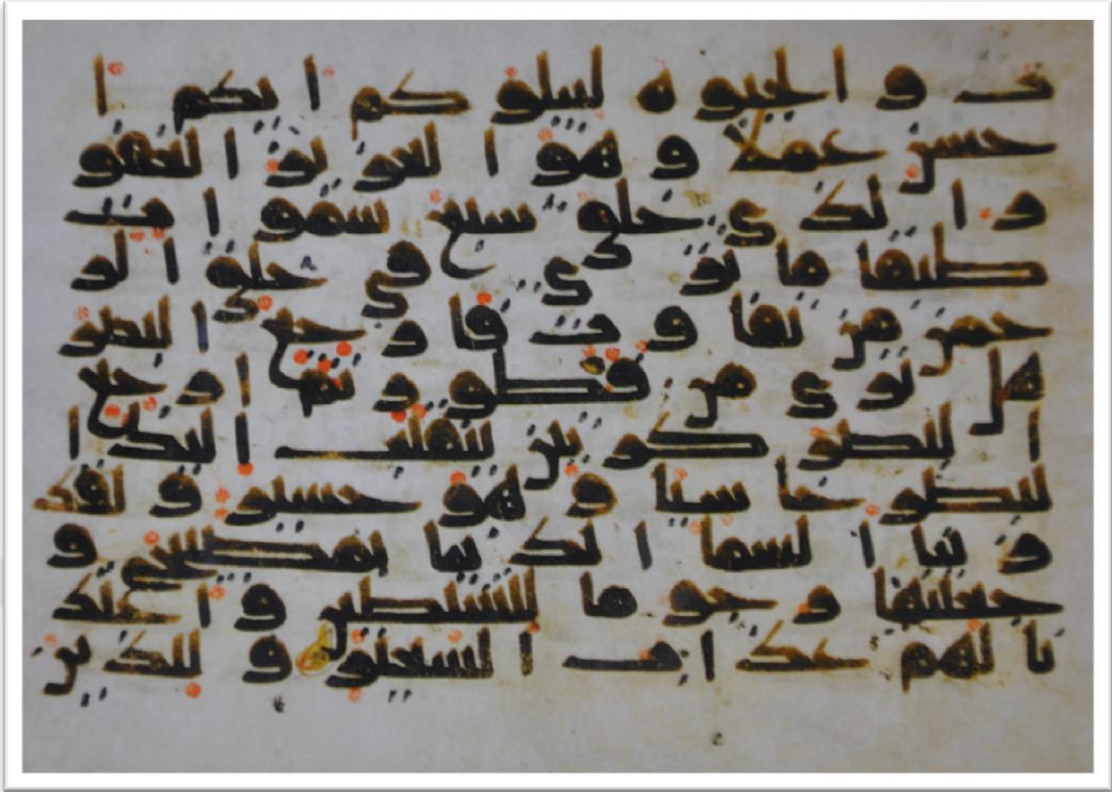 ت و الحيوة ليبلوكم ايكم ا
حسن عملا و هو العزيز الغفو
ر الذي خلق سبع سموات
طبقا ما ترى في خلق الر
حمن من تفاوت فارجع البصر
هل ترى من فطور ثم ارجع
البصر كرتين ينقلب اليك ا
لبصر خاسيا و هو حسير و لقد
زينا السما الدنيا بمصبيح و
جعلنها رجوما للشيطين و اعتد
نا لهم عذاب السعير و للذين